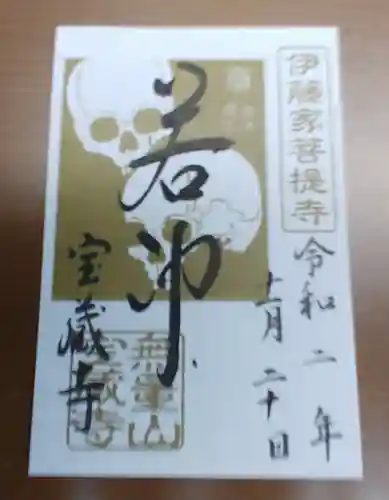 伊藤家菩提寺
令和二年
十一月二十日
若冲
宝蔵寺
無量山
宝蔵寺